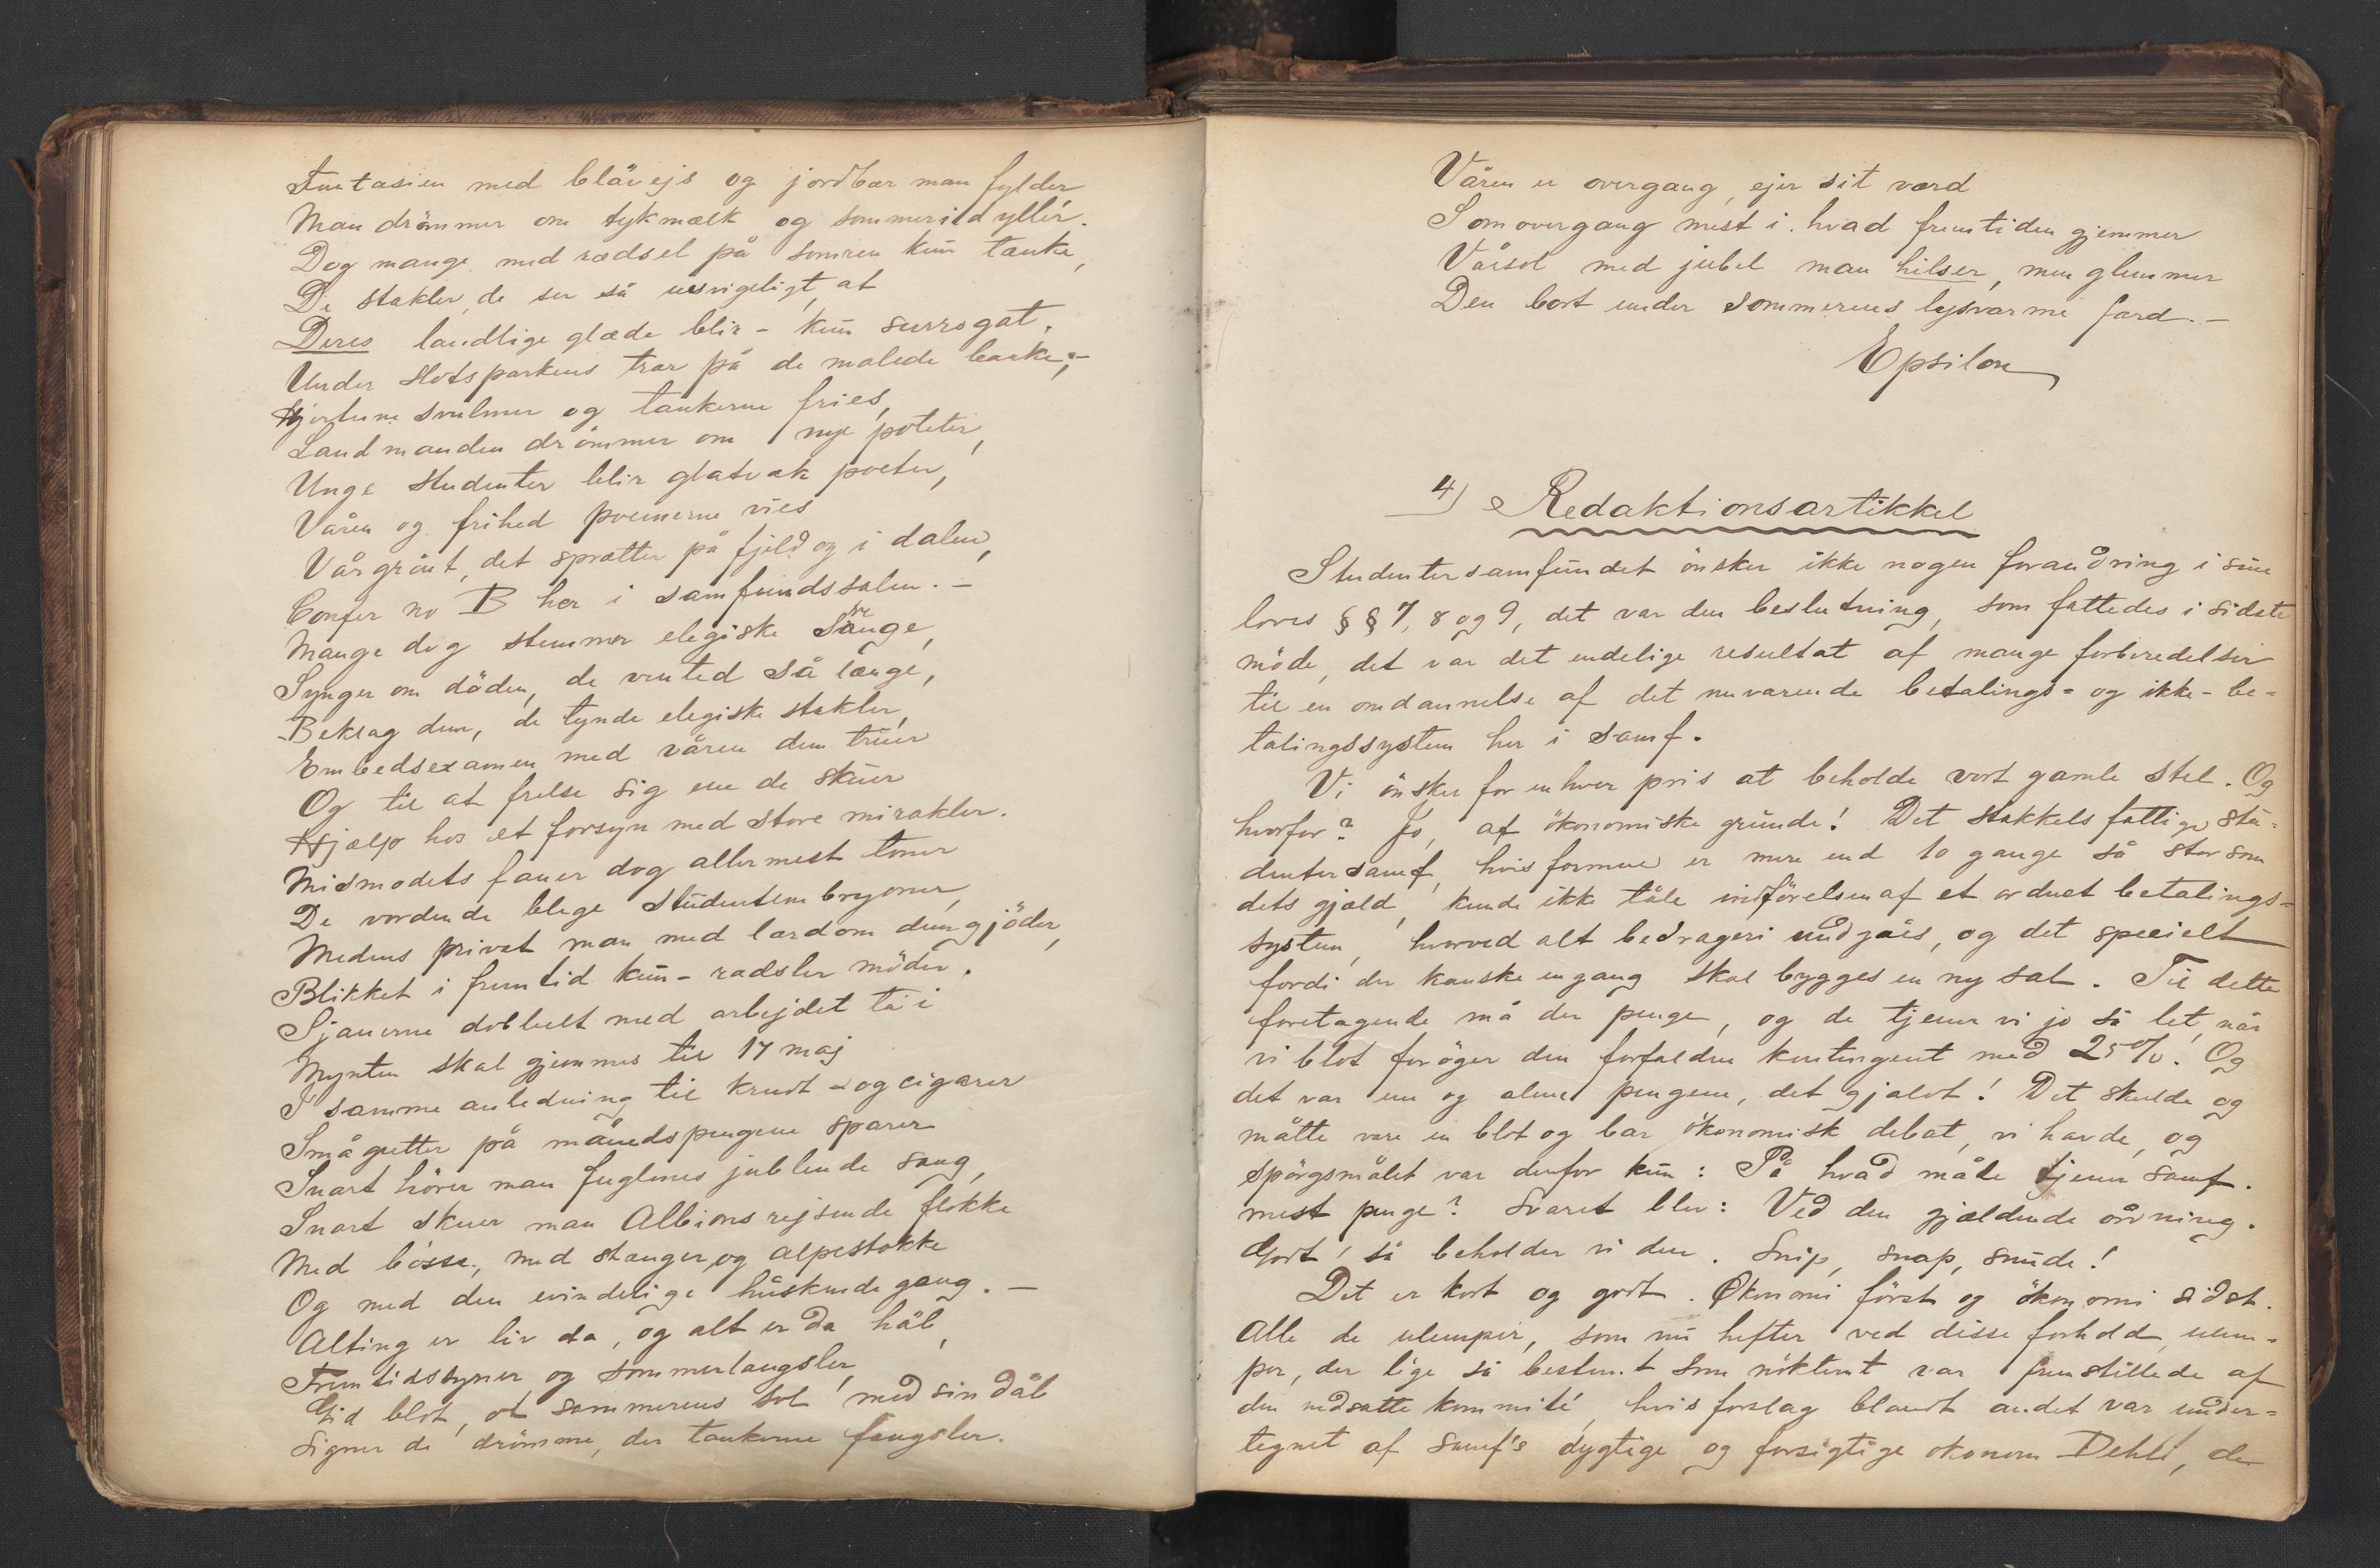 Fantasien med blåvejs og jordbær man fylder
Man drömmer om tykmælk og sommeridyller.
Dog mange med rædsel på somren kun tænke,
De stakler, de ser så usvigeligt, at
Deres landlige glæde blir - kun surrogat,
Under slotsparkens trær på de malede bænke; -
Hjerterne svulmer og tankerne fries,
Landmanden drömmer om nye poteter,
Unge studenter blir glatvæk poeter,
Våren og frihed poemerne vies
Vårgrönt, det sprætter på fjeld og i dalen,
Confer no B her i samfundssalen. -
Mange dog stemmer elegiske sange,
Synger om döden, de vented så længe,
Beklag dem, de tynde elegiske stakler,
Embedsexamen med våren dem truer
Og til at frelse sig ene de skuer
Hjælp hos et forsyn med store mirakler.
Mismodets faner dog allermest toner
De vordende blege studentembryoner,
Medens privat man med lærdom dem gjöder,
Blikket i fremtid kun - rædsler möder.
Sjauerne dobbelt med arbejdet ta'r i
Mynten skal gjemmes til 17 maj
I samme anledning til krudt - og cigarer
Smågutter på månedspengene sparer
Snart hörer man fuglenes jublende sang,
Snart skuer man Albions rejsende flokke
Med bösse, med stanger og alpestokke
Og med den evindelige huskende gang. -
Alting er liv da, og alt er da håb,
Fremtidssyner og sommerlængsler,
Gid blot, at sommerens sol med sin dåb
Signer de drömme, der tankerne fængsler.
Våren er overgang, ejer sit værd
Som overgang mest i. hvad fremtiden gjemmer
Vårsol med jubel man hilser, men glemmer
Den bort under sommerens lysvarme færd. -
Epsilon
4) Redaktionsartikkel
Studentersamfundet önsker ikke nogen forandring i sine
loves § § 7, 8 og 9, det var den beslutning, som fattedes i sidste
möde, det var det endelige resultat af mange forberedelser
til en omdannelse af det nuværende betalings- og ikke-be-
talingssystem her i samf.
Vi önsker for enhver pris at beholde vort gamle stel. Og
hvorfor? Jo, af ökonomiske grunde! Det stakkels fattige stu-
dentersamf, hvis formue er mere end 10 gange så stor som
dets gjæld, kunde ikke tåle indförelsen af et ordnet betalings-
system, hvorved alt bedrageri undgåes, og det specielt
fordi der kanske engang skal bygges en ny sal. Til dette
foretagende må der penge, og de tjener vi jo så let, når
vi blot foröger den forfaldne kontingent med 25%. Og
det var ene og alene pengene, det gjaldt! Det skulde og
måtte være en blot og bar ökonomisk debat, vi havde, og
spörgsmålet var derfor kun: På hvad måde tjener samf.
mest penge? Svaret blev: Ved den gjældende ordning.
Godt! så beholder vi den. Snip, snap, snude!
Det er kort og godt. Økonomi först og ökonomi sidst.
Alle de ulemper, som nu hefter ved disse forhold, ulem-
per, der lige så bestemt som nöktent var fremstillede af
den nedsatte kommité, hvis forslag blandt andet var under-
tegnet af samf's dygtige og forsigtige økonom Dehli, der